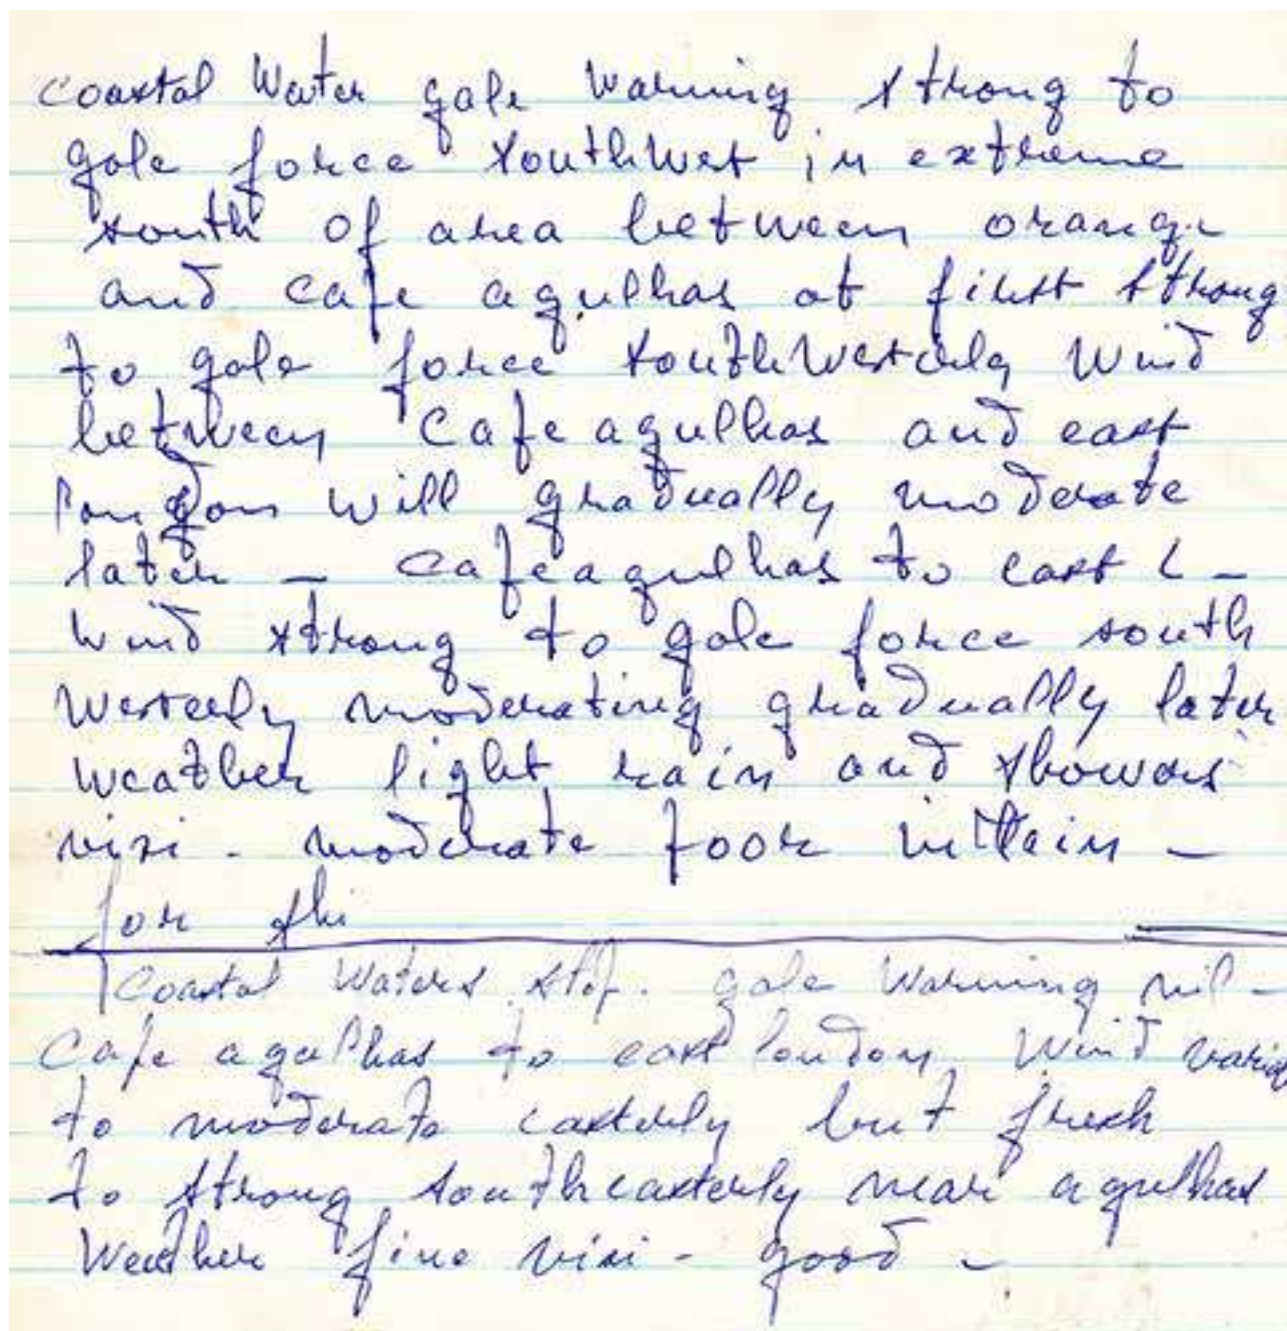 coastal Water gale Warning strong to
gale force southwest in extreme
south of area between orange
and cape agulhas at first strong
to gale force southwesterly wind
between cape agulhas and east
london will gradually moderate
later - cape agulhas to east L -
wind strong to gale force south
westerly moderating gradually later
weather light rain and showers
visi - moderate poor in rain -
for shi
Coastal Waters stop. gale warning nil -
cape agulhas to east london wind
to moderate easterly but fresh
to strong southeasterly near agulhas
Weather fine visi - good -